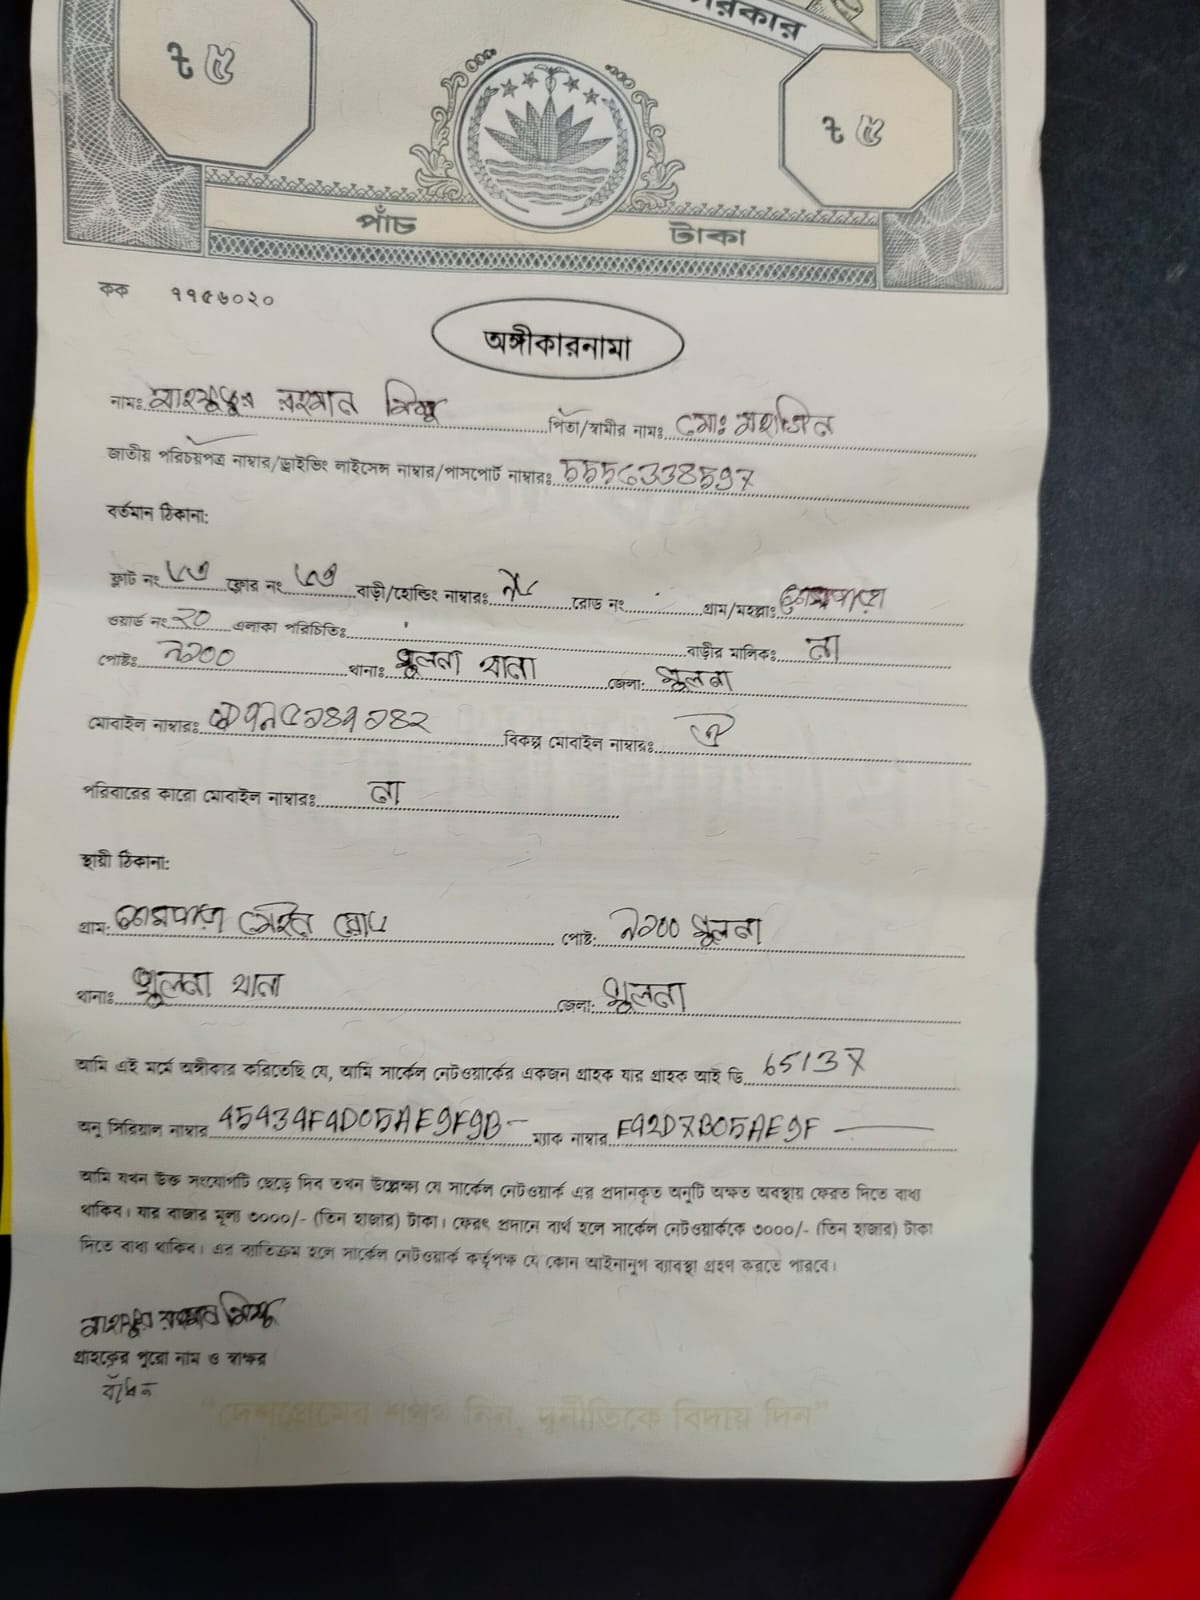 রকার
৳ ৫
৳ ৫
পাঁচ টাকা
কক ৭৭৫৬০২০
অঙ্গীকারনামা
নামঃ মাহফুজুর রহমান পিতা/স্বামীর নামঃ মোঃ মহসিন
জাতীয় পরিচয়পত্র নাম্বার/ড্রাইভিং লাইসেন্স নাম্বার/পাসপোর্ট নাম্বারঃ 5556338597
বর্তমান ঠিকানা:
ফ্লাট নং ফ্লোর নং বাড়ী/হোল্ডিং নাম্বারঃ রোড নং গ্রাম/মহল্লাঃ
ওয়ার্ড নং ২০ এলাকা পরিচিতিঃ বাড়ীর মালিকঃ না
পোষ্টঃ ৯১০০ থানাঃ খুলনা থানা জেলা: খুলনা
মোবাইল নাম্বারঃ বিকল্প মোবাইল নাম্বারঃ
পরিবারের কারো মোবাইল নাম্বারঃ না
স্থায়ী ঠিকানা:
গ্রাম: মেইন রোড পোষ্ট: ৯১০০ খুলনা
থানাঃ খুলনা থানা জেলা: খুলনা
আমি এই মর্মে অঙ্গীকার করিতেছি যে, আমি সার্কেল নেটওয়ার্কের একজন গ্রাহক যার গ্রাহক আই ডি 65137
অনু সিরিয়াল নাম্বার 45434F4D05AE9F9B ম্যাক নাম্বার E42D7B05AE9F
আমি যখন উক্ত সংযোগটি ছেড়ে দিব তখন উল্লেক্ষ্য যে সার্কেল নেটওয়ার্ক এর প্রদানকৃত অনুটি অক্ষত অবস্থায় ফেরত দিতে বাধ্য
থাকিব। যার বাজার মূল্য ৩০০০/- (তিন হাজার) টাকা। ফেরৎ প্রদানে ব্যর্থ হলে সার্কেল নেটওয়ার্ককে ৩০০০/- (তিন হাজার) টাকা
দিতে বাধ্য থাকিব। এর ব্যতিক্রম হলে সার্কেল নেটওয়ার্ক কর্তৃপক্ষ যে কোন আইনানুগ ব্যাবস্থা গ্রহণ করতে পারবে।
মাহফুজুর রহমান
গ্রাহকের পুরো নাম ও স্বাক্ষর
"দেশপ্রেমের শপথ নিন, দুর্নীতিকে বিদায় দিন"